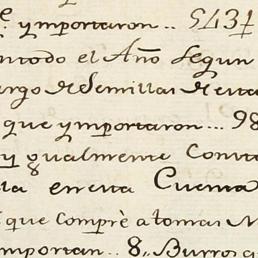 e. ymportaron... 5731
ntodo el Año segun
argo de Semillas de esta
que ymportaron... 98
y gualmente Consta
lla en esta Cuenta
que comprè a tomas
mportan.. 8,, Burros q